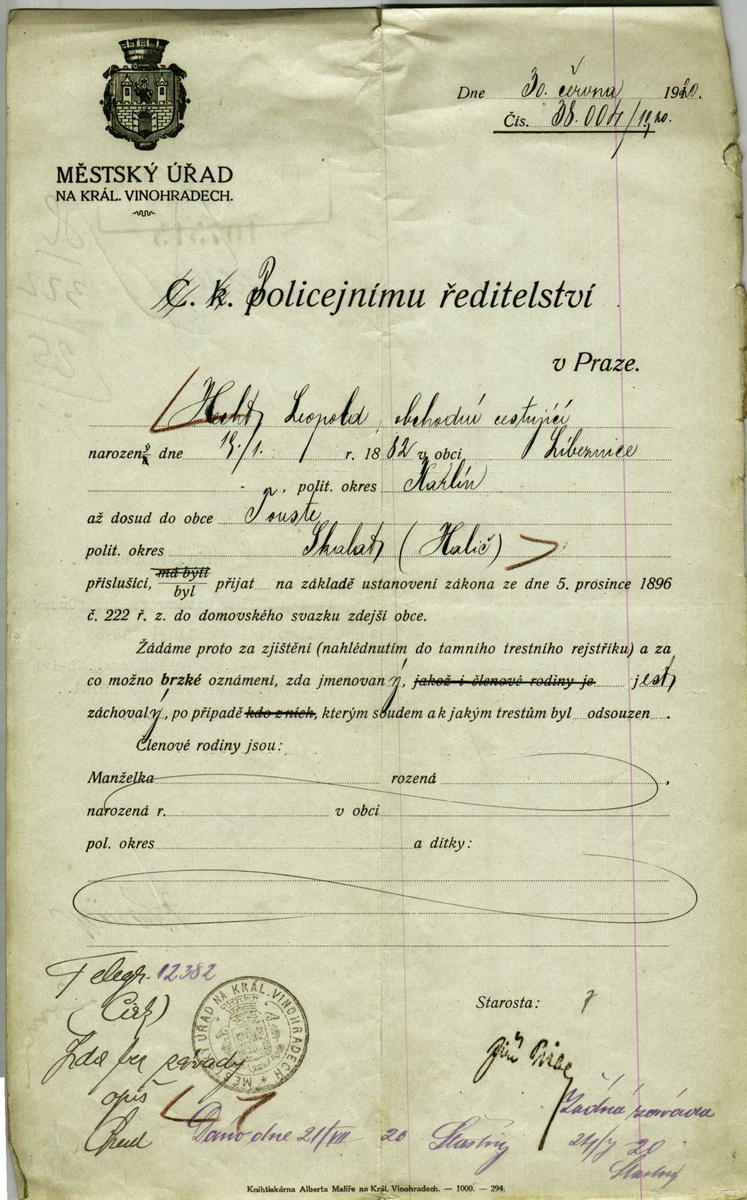 Dne 30. června 1920.
Čís. 38.004/1920.
MĚSTSKÝ ÚŘAD
NA KRÁL. VINOHRADECH.
C. k. Policejnímu ředitelství
v Praze.
Hecht Leopold, obchodní cestující
narozený dne 19./1. r. 1882 v obci Líbeznice
p. polit. okres Karlín
až dosud do obce Touste
polit. okres Skalat (Halič)
příslušící, má býti byl přijat na základě ustanovení zákona ze dne 5. prosince 1896
č. 222 ř. z. do domovského svazku zdejší obce.
Žádáme proto za zjištění (nahlédnutím do tamního trestního rejstříku) a za
co možno brzké oznámení, zda jmenovaný, jakož i členové rodiny je jest
záchovalý, po případě kdo z nich, kterým soudem a k jakým trestům byl odsouzen.
Členové rodiny jsou:
Manželka rozená
narozená r. v obci
pol. okres a dítky:
Telegr. 12382
MĚSTSKÝ ÚŘAD NA KRÁL. VINOHRADECH
Starosta:
Zde bez závady
opis
Dáno dne 21/VII 20 Šťastný
Žádná závada
24/7 20
Šťastný
Knihtiskárna Alberta Malíře na Král. Vinohradech. — 1000. — 294.